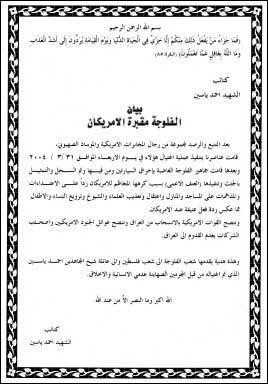 بسم الله الرحمن الرحيم
(فما جزاء من يفعل ذلك منكم إلا خزي في الحياة الدنيا ويوم القيامة يردون إلى أشد العذاب
وما الله بغافل عما تعملون)
كتائب
الشهيد احمد ياسين
بيان
الفلوجة مقبرة الامريكان
بعد التتبع والرصد لمجموعة من رجال المخابرات الامريكية والموساد الصهيوني.
قامت عناصرنا بتنفيذ عملية اغتيال هؤلاء في يوم الاربعاء الموافق ٢٠٠٤ / ٣/٣١
وبعدها قامت جماهير الفلوجة الغاضبة بإحراق السيارتين ومن فيها وتم السحل والتمثيل
بالجثث وتنفيذها (العنف الاعمى) بسبب كرهها المتعاظم للامريكان رداً على الاعتداءات
والمداهمات على المساجد والمنازل واعتقال وتعذيب العلماء والشيوخ وترويع النساء والاطفال
مما عكس ردة فعل عنيفة ضد الامريكان.
وننصح القوات الامريكية بالانسحاب من العراق وننصح عوائل الجنود الامريكيين واصحاب
الشركات بعدم القدوم الى العراق.
وهذه هدية يقدمها شعب الفلوجة الى شعب فلسطين والى عائلة شيخ المجاهدين احمد ياسين
الذي تم اغتياله من قبل المجرمين الصهاينة عدمي الانسانية والاخلاق.
الله اكبر وما النصر الا من عند الله
كتائب
الشهيد احمد ياسين